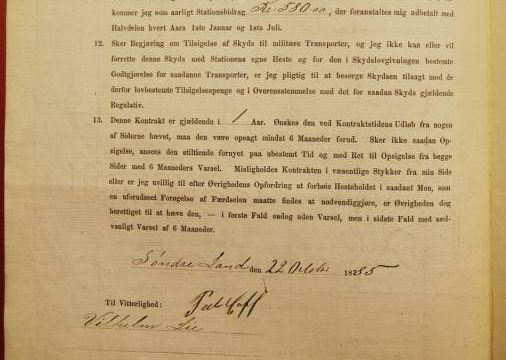 kommer jeg som aarligt Stationsbidrag Kr. 580.00, der foranstaltes mig udbetalt med
Halvdelen hvert Aars 1ste Januar og 1ste Juli.
12. Sker Regjering om Tilsigelse af Skyds til militære Transporter, og jeg ikke kan eller vil
forrette denne Skyds med Stationens egne Heste og for den i Skydslovgivningen bestemte
Godtgjørelse for saadanne Transporter, er jeg pligtig til at besørge Skydsen tilsagt mod de
derfor lovbestemte Tilsigelsespenge og i Overensstemmelse med det for saadan Skyds gjældende
Regulativ.
13. Denne Kontrakt er gjældende i 1 Aar. Ønskes den ved Kontraktstidens Udløb fra nogen
af Siderne hævet, maa den være opsagt mindst 6 Maaneder forud. Sker ikke saadan Op-
sigelse, ansees den stiltiende fornyet paa ubestemt Tid og med Ret til Opsigelse fra begge
Sider med 6 Maaneders Varsel. Misligholdes Kontrakten i væsentlige Stykker fra min Side
eller er jeg uvillig til efter Øvrighedens Opfordring at forhøie Hesteholdet i saadant Mon, som
en uforudseet Forøgelse af Færdselen maatte findes at nødvendiggjøre, er Øvrigheden dog
berettiget til at hæve den, — i første Fald endog uden Varsel, men i sidste Fald med sæd-
vanligt Varsel af 6 Maaneder.
Søndre Land den 22 Octbr 1885
Til Vitterlighed:
Vilhelm Lie